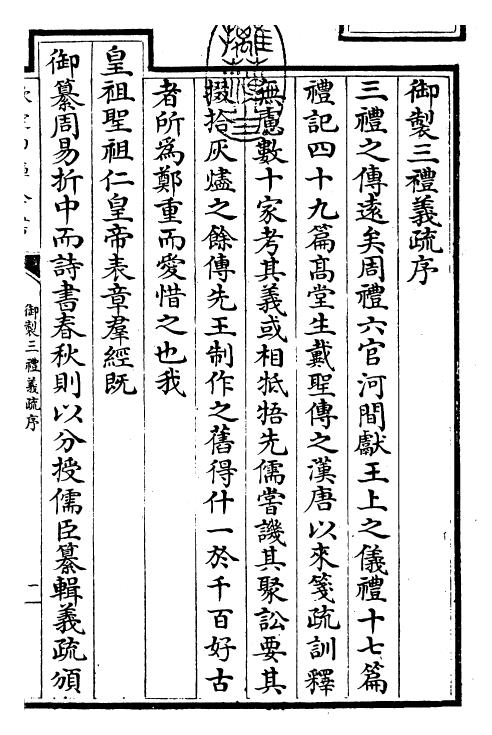 御製三禮義疏序
三禮之傳遠矣周禮六官河間獻王上之儀禮十七篇
禮記四十九篇高堂生戴聖傳之漢唐以來箋疏訓釋
無慮數十家考其義或相牴牾先儒嘗譏其聚訟要其
掇拾灰燼之餘傳先王制作之舊得什一於千百好古
者所為鄭重而愛惜之也我
皇祖聖祖仁皇帝表章羣經既
御纂周易折中而詩書春秋則以分授儒臣纂輯義疏頒
御製三禮義疏序
一